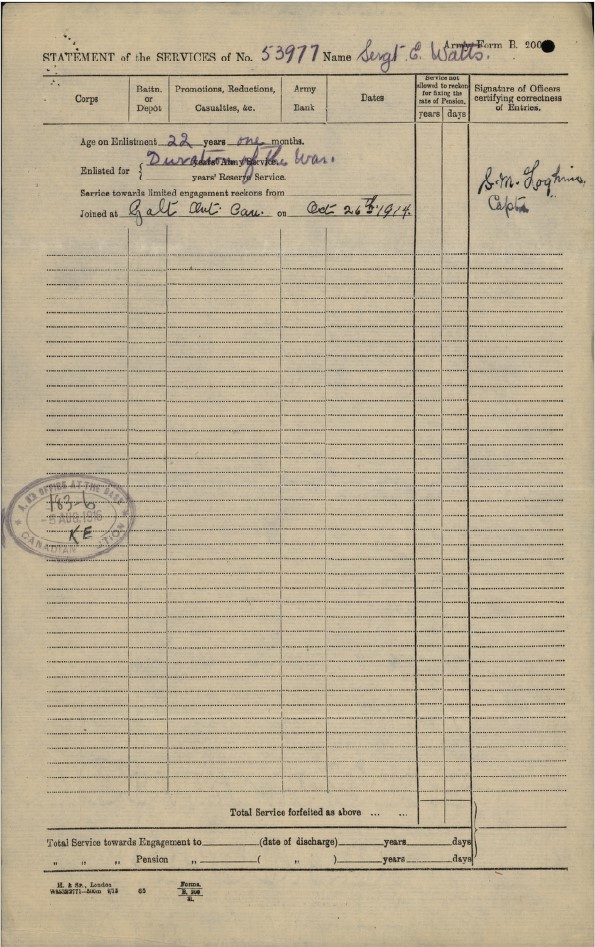 Army Form B. 200
STATEMENT of the SERVICES of No. 53977 Name Sergt E. Watts.
Corps
Battn. or Depôt
Promotions, Reductions, Casualties, &c.
Army Rank
Dates
Service not allowed to reckon for fixing the rate of Pension.
years days
Signature of Officers certifying correctness of Entries.
Age on Enlistment 22 years one months.
Enlisted for { Duration of the War.
years' Army Service.
years' Reserve Service.
Service towards limited engagement reckons from
Joined at Galt Ont. Can. on Oct 26th 1914.
Capt
OFFICE AT THE BASE
183-6
AUG. 1916
KE
CANADIAN
Total Service forfeited as above ... ...
Total Service towards Engagement to (date of discharge) years days
„ „ „ Pension „ ( „ ) years days
H. & Sp., London
65
Forms.
B. 200